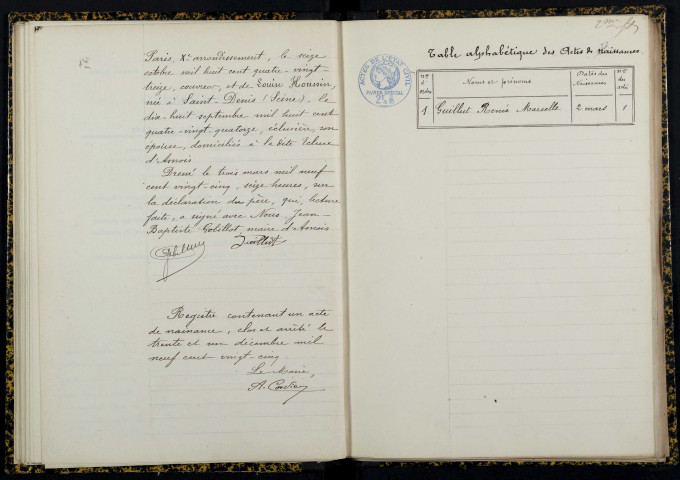 Paris, Xe arrondissement, le seize
octobre mil huit cent quatre-vingt-
treize, couvreur, et de Louise Houssin,
née à Saint-Denis (Seine), le
dix-huit septembre mil huit cent
quatre-vingt-quatorze, éclusière, son
épouse, domiciliés à la dite Ecluse
d'Asnois
Dressé le trois mars mil neuf
cent vingt-cinq, seize heures, sur
la déclaration du père, qui, lecture
faite, a signé avec Nous, Jean-
Baptiste Gobillot, maire d'Asnois.
Guilliet
Registre contenant un acte
de naissance, clos et arrêté le
trente et un décembre mil
neuf cent vingt-cinq
Le Maire,
ACTES DE L'ETAT CIVIL
PAPIER SPECIAL
Table alphabétique des Actes de Naissances.
Nos d'ordre
Noms et prénoms
Dates des Naissances
Nos des actes
1 Guilliet Renée Marcelle 2 mars 1